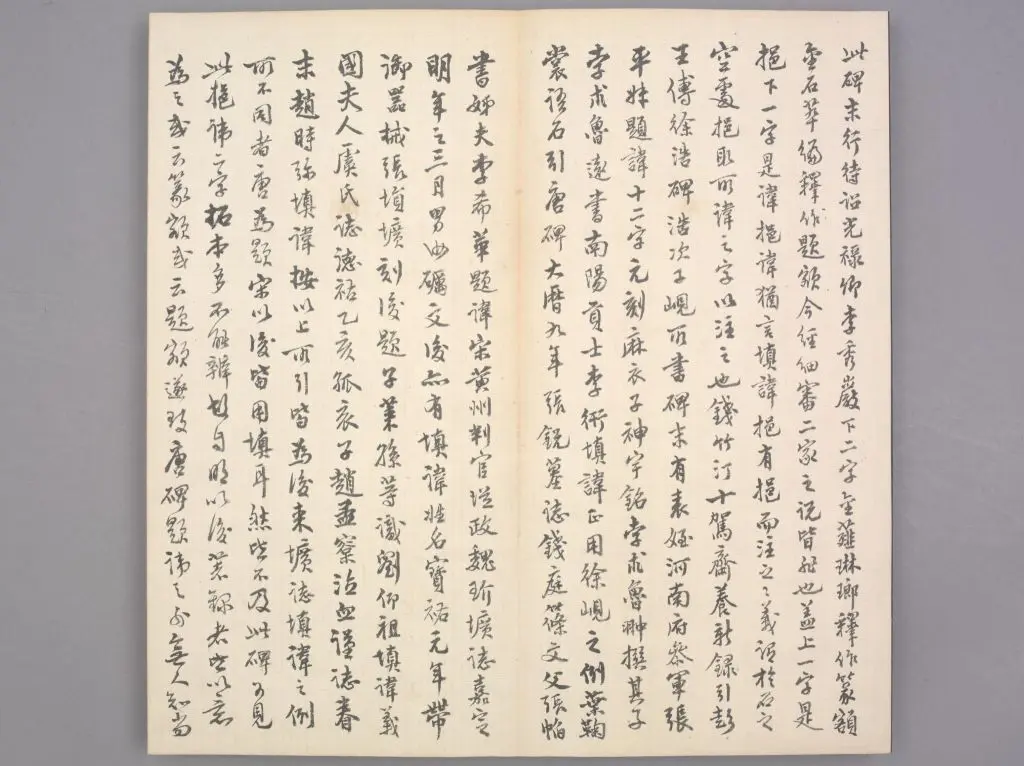 此碑末行待詔光祿卿李秀巖下二字金薤琳瑯釋作篆額
金石萃編釋作題額今經細審二家之説皆非也蓋上一字是
挹下一字是諱挹諱猶言填諱挹有挹而注之之義謂於石之
空處挹取所諱之字以注之也錢竹汀十駕齋養新錄引彭
王傅徐浩碑浩次子峴所書碑末有表姪河南府參軍張
平妹題諱十二字元刻麻衣子神宇銘孛朮魯翀撰其子
孛朮魯遠書南陽貢士李術填諱正用徐峴之例葉鞠
裳語石引唐碑大曆九年張鋭墓誌錢庭篠文父張
書姊夫李希華題諱宋黃州判官從政魏玠壙誌嘉定
明年之三月男汝礪文後亦有填諱姓名寶祐元年帶
御器械張塤壙刻後題子業孫等識劉仰祖填諱義
國夫人虞氏誌德祐乙亥孤哀子趙孟寮泣血謹誌眷
末趙時弥填諱按以上所引皆為後來壙誌填諱之例
所不同者唐為題宋以後皆用填耳然皆不及此碑可見
此挹諱二字拓本多不能辨故自明以後著錄者皆以意
為之或云篆額或云題額遂致唐碑題諱之外無人知尚